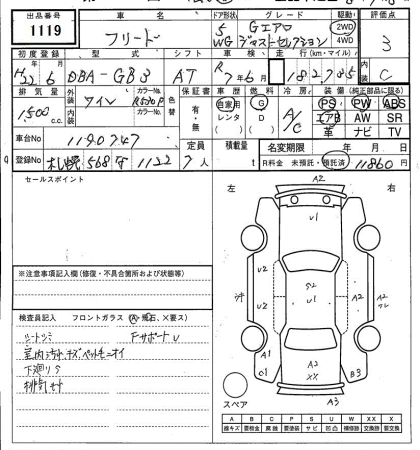 出品番号 車名 ドア形状 グレード 駆動 評価点
1119 フリード 5 WG Gエアロ ジャストセレクション 2WD 4WD 3
初度登録 型式 シフト 車検 走行(km・マイル) 内装
H22 6 DBA-GB3 AT R 7年6月 182,785 C
排気量 外装色 カラーNo. 色替 保証書 車歴 燃料 冷房 装備(純正部品に限る)
1500 c.c. ワイン R530P 有・無 自家用 レンタ G D A/C PS PW ABS
内装 カラーNo. エアB AW SR
車台No 1190747 革 ナビ TV
定員 積載量 名変期限 年 月 日
登録No 札幌 568 1122 7人 t R料金 未預託・預託済 11860円
セールスポイント
左 右
※注意事項記入欄(修復・不具合箇所および状態等)
検査員記入 フロントガラス(A・飛石、×要ス)
シートシミ FサポートU
室内汚れキズペットモニオイ
下廻りS
排気サ
A2
U1
U2
U2
S2
U1
A2
A2
A1
C1
A2
XX
B3
A3
スペア
A B C P S U W X XX ×
線キズ 要板金 腐蝕 要塗装 サビ 凹凸 補修跡 交換跡 要交換